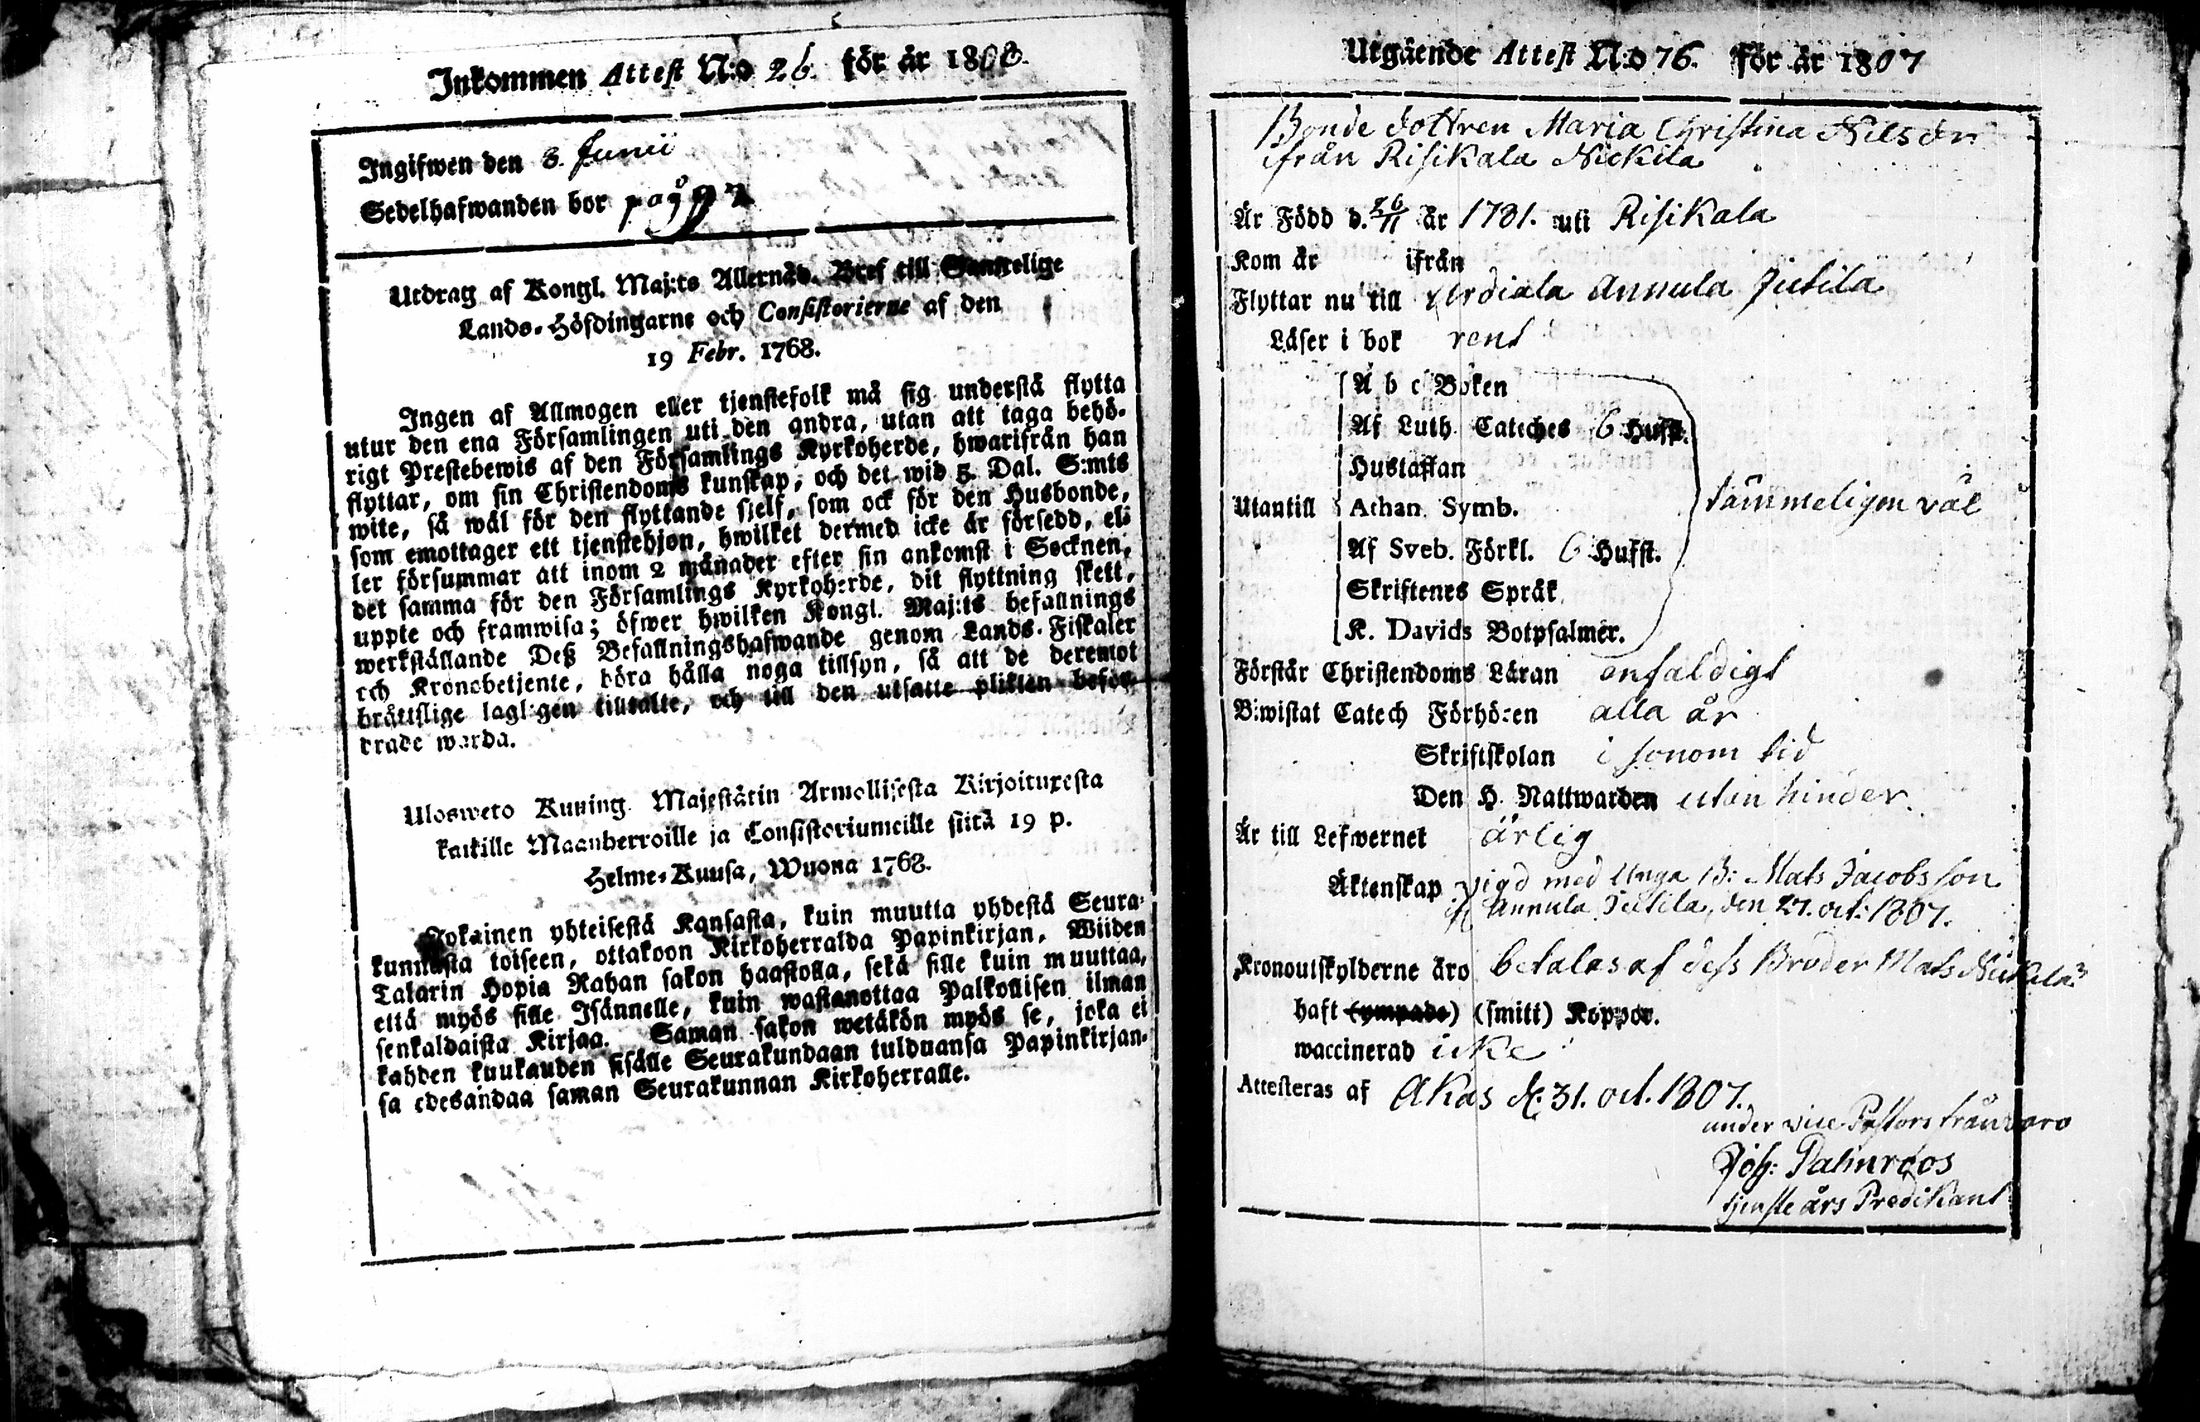 Inkommen Attest N:o 26. för år 1808.
Ingifwen den 8. Junii
Sedelhafwanden bor på
Utdrag af Kongl. Maj:ts Allernåd. Bref till Samtelige
Lands-Höfdingarne och Consistorierne af den
19 Febr. 1768.
Ingen af Allmogen eller tjenstefolk må sig understå flytta
utur den ena Församlingen uti den andra, utan att taga behö-
rigt Prestebewis af den Församlings Kyrkoherde, hwarifrån han
flyttar, om sin Christendoms kunskap, och det wid 5. Dal. S:mts
wite, så wäl för den flyttande sjelf, som ock för den Husbonde,
som emottager ett tjenstehjon, hwilket dermed icke är försedd, el-
ler försummar att inom 2 månader efter sin ankomst i Socknen,
det samma för den Församlings Kyrkoherde, dit flyttning skett,
uppte och framwisa; öfwer hwilken Kongl. Maj:ts befallnings
werkställande Deß Befallningshafwande genom Lands-Fiskaler
och Kronobetjente, böra hålla noga tillsyn, så att de deremot
bråttslige lagligen tilltalte, och till den utsatte plikten befor-
drade warda.
Ulosweto Kuning. Majestätin Armollisesta Kirjoituxesta
kaikille Maanherroille ja Consistoriumeille siitä 19 p.
Helme-Kuusa, Wuona 1768.
Jokainen yhteisestä Kansasta, kuin muutta yhdestä Seura-
kunnasta toiseen, ottakoon Kirkoherralda Papinkirjan, Wiiden
Talarin Hopia Rahan sakon haastolla, sekä sille kuin muuttaa,
että myös sille Isännelle, kuin wastanottaa Palkollisen ilman
senkaldaista Kirjaa. Saman sakon wetäkön myös se, joka ei
kahden kuukauden sisälle Seurakundaan tulduansa Papinkirjan-
sa edesandaa saman Seurakunnan Kirkoherralle.
Utgående Attest N:o 76. för år 1807
Bonde dottren Maria Christina Nilsdr
ifrån Risikala Nickila
Är Född d. 26/11 år 1781. uti Risikala
Kom år ifrån
Flyttar nu till Urdiala Annula Jutila
Läser i bok rent
A b c Boken
Af Luth. Catches 6 Hufst.
Hustaflan
Utantill Athan. Symb. tämmeligen väl
Af Sveb. Förkl. 6 Hufst.
Skriftenes Språk
K. Davids Botpsalmer.
Förstår Christendoms Läran enfaldigt
Biwistat Catech Förhören alla år
Skriftskolan i sonom tid
Den H. Nattwarden utan hinder.
Är till Lefwernet ärlig
Äktenskap vigd med Unga B: Mats Jacobsson
Annula Jutila, den 27. oct: 1807.
Kronoutskylderne äro betalas af dess Broder Mats Nickila
haft (ympade) (smitt) Koppor.
waccinerad icke
Attesteras af Akas d. 31. oct. 1807.
under vice Pastors frånvaro
Joh: Palmroos
tjenste års Predikant